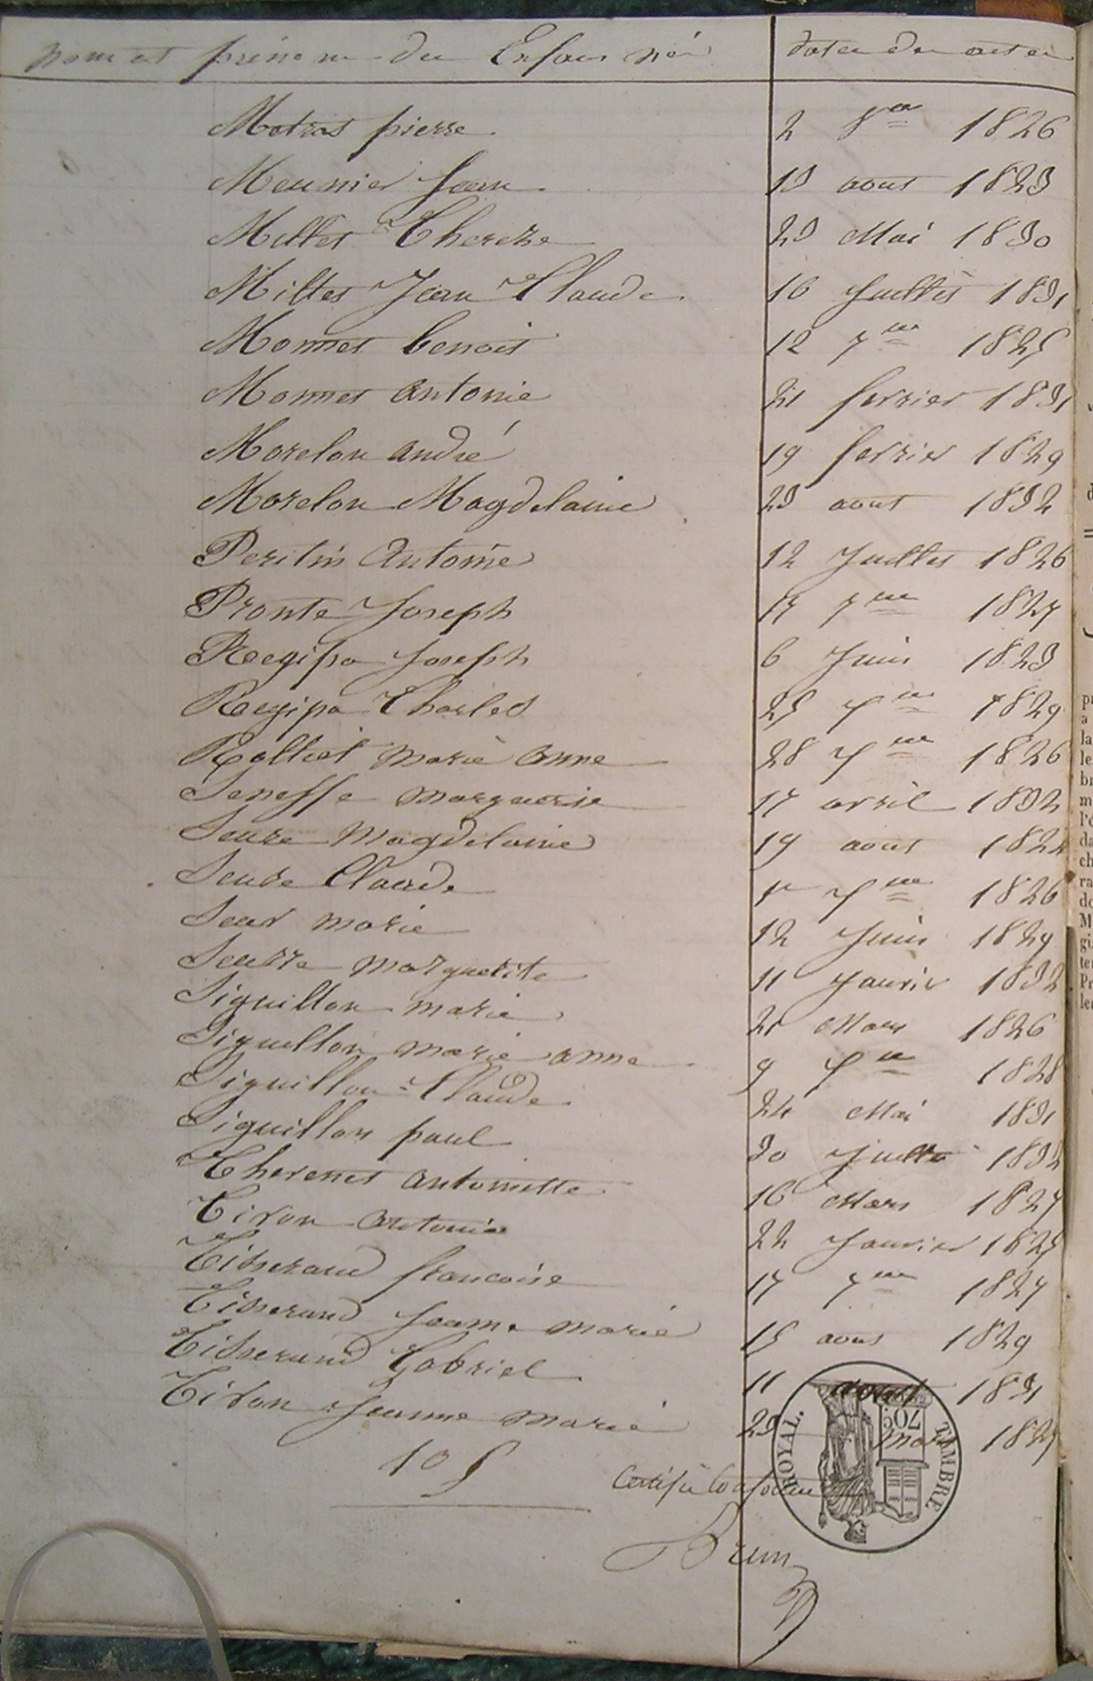 nom et prénom des Enfans nés date des actes
Matras pierre 2 8bre 1826
Meunier Jean 13 aout 1823
Milles Thereze 23 Mai 1830
Milles Jean Claude 16 Juillet 1831
Monnet benoit 12 7bre 1825
Monnet antonie 21 fevrier 1831
Morelon andré 19 fevrier 1829
Morelon Magdelaine 23 aout 1832
Antoine 12 Juillet 1826
Pronte Joseph 17 7bre 1827
Regipa Joseph 6 Juin 1823
Regipa Charles 25 1829
marie anne 28 1826
marguerite 17 avril 1832
Seure Magdelaine 19 aout 1824
Seure Claude 1er 1826
Seur marie 12 Juin 1829
Seurre marguerite 11 Janvier 1832
Siguillon marie 21 Mars 1826
Siguillon marie anne 9 1828
Siguillon Claude 24 Mai 1831
Siguillon paul 30 Juillet 1832
Therenet antoinette 16 Mars 1827
Tivon antonie 22 Janvier 1825
Tisserand francoise 17 7bre 1827
Tisserand Jeanne marie 15 aout 1829
Tisserand Gabriel 11 aout 1831
Tivon Jeanne marie 23 mars
105
Certifié Conforme
Brun
TIMBRE ROYAL.
70c